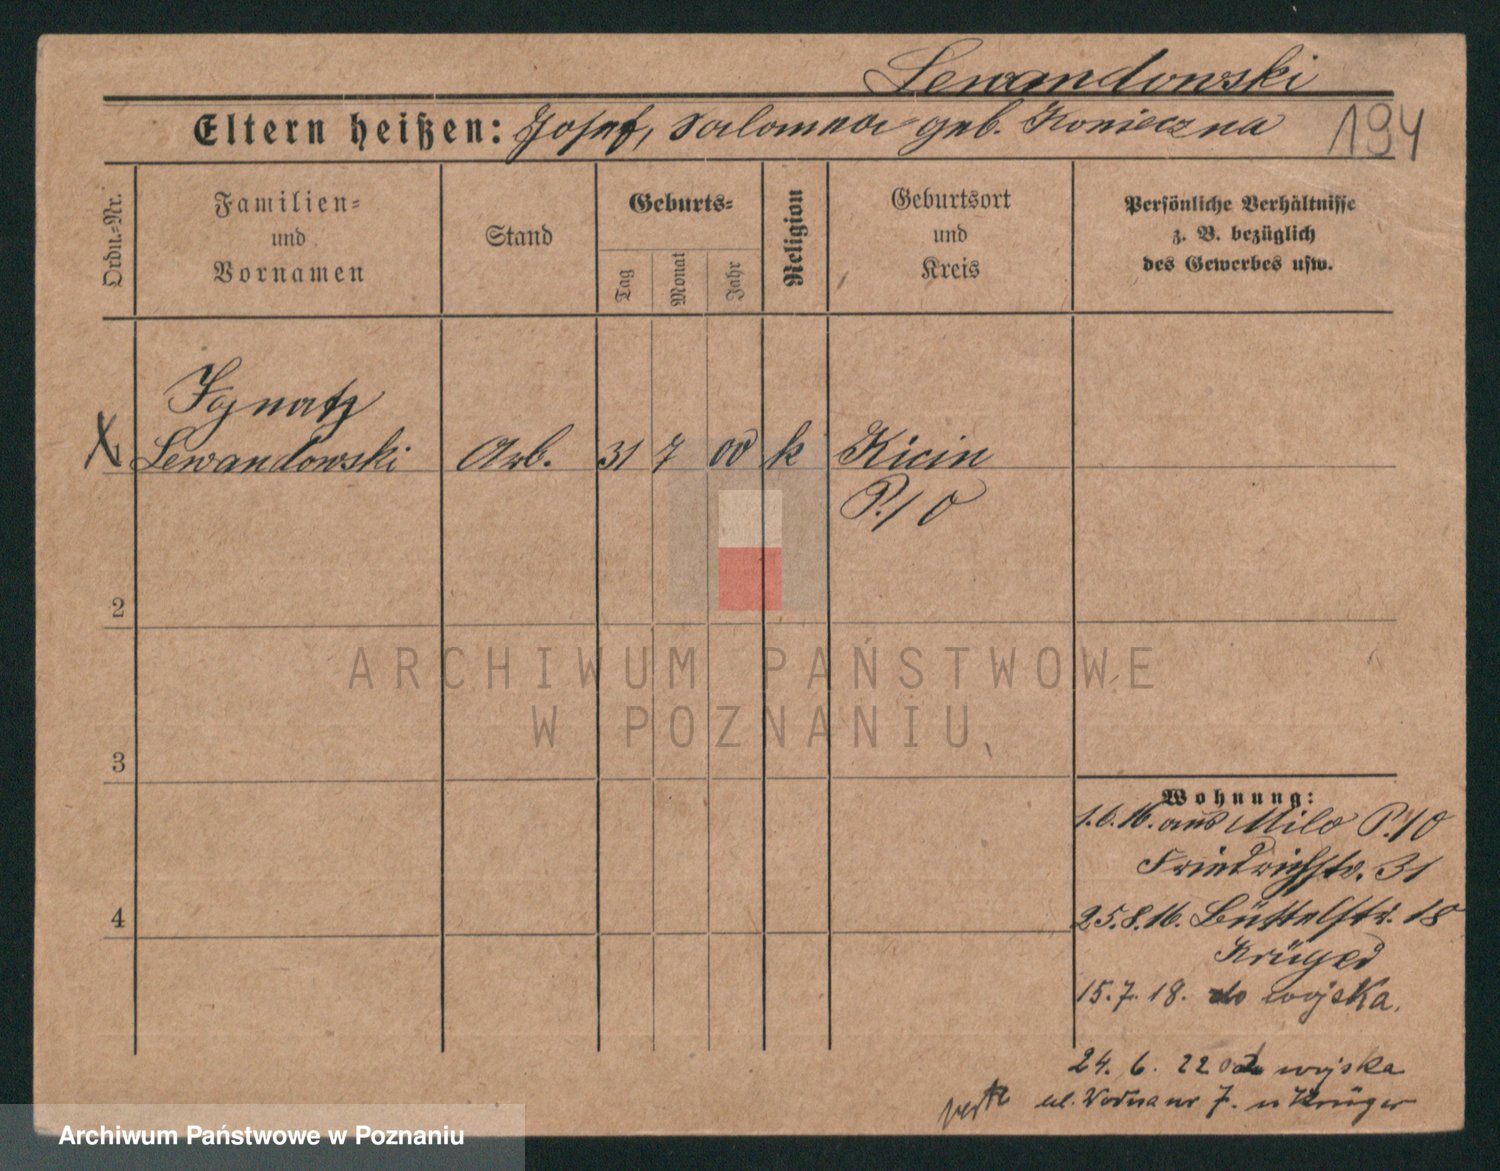 Lewandowski
Eltern heißen: Josef, Salomea geb. Konieczna
194
Ordn.-Nr.
Familien-
und
Vornamen
Stand
Geburts-
Tag
Monat
Jahr
Religion
Geburtsort
und
Kreis
Persönliche Verhältnisse
z. B. bezüglich
des Gewerbes usw.
X
Ignatz
1 Lewandowski Arb. 31 7 00 k Kicin
P. / O
2
ARCHIWUM PAŃSTWOWE
W POZNANIU
3
Wohnung:
1.6.16. aus Milo P. / O
Friedrichstr. 31
4
25.8.16. Büttelstr. 18
Krüger
15.7.18. do wojska.
24. 6. 22 od wojska
ul. Wodna nr 7. u Krüger
Archiwum Państwowe w Poznaniu